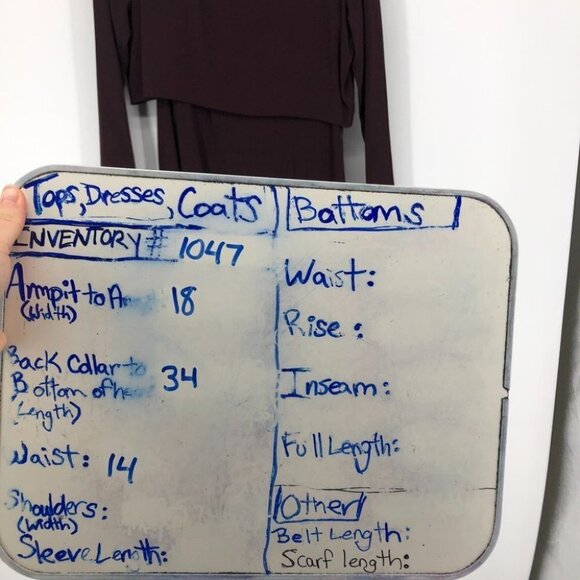 Tops, Dresses, Coats
INVENTORY # 1047
Armpit to
(Width)
18
Back Collar to
Bottom of
(Length)
34
Waist: 14
Shoulders:
(Width)
Sleeve Length:
Bottoms
Waist:
Rise:
Inseam:
Full Length:
Other
Belt Length:
Scarf length: